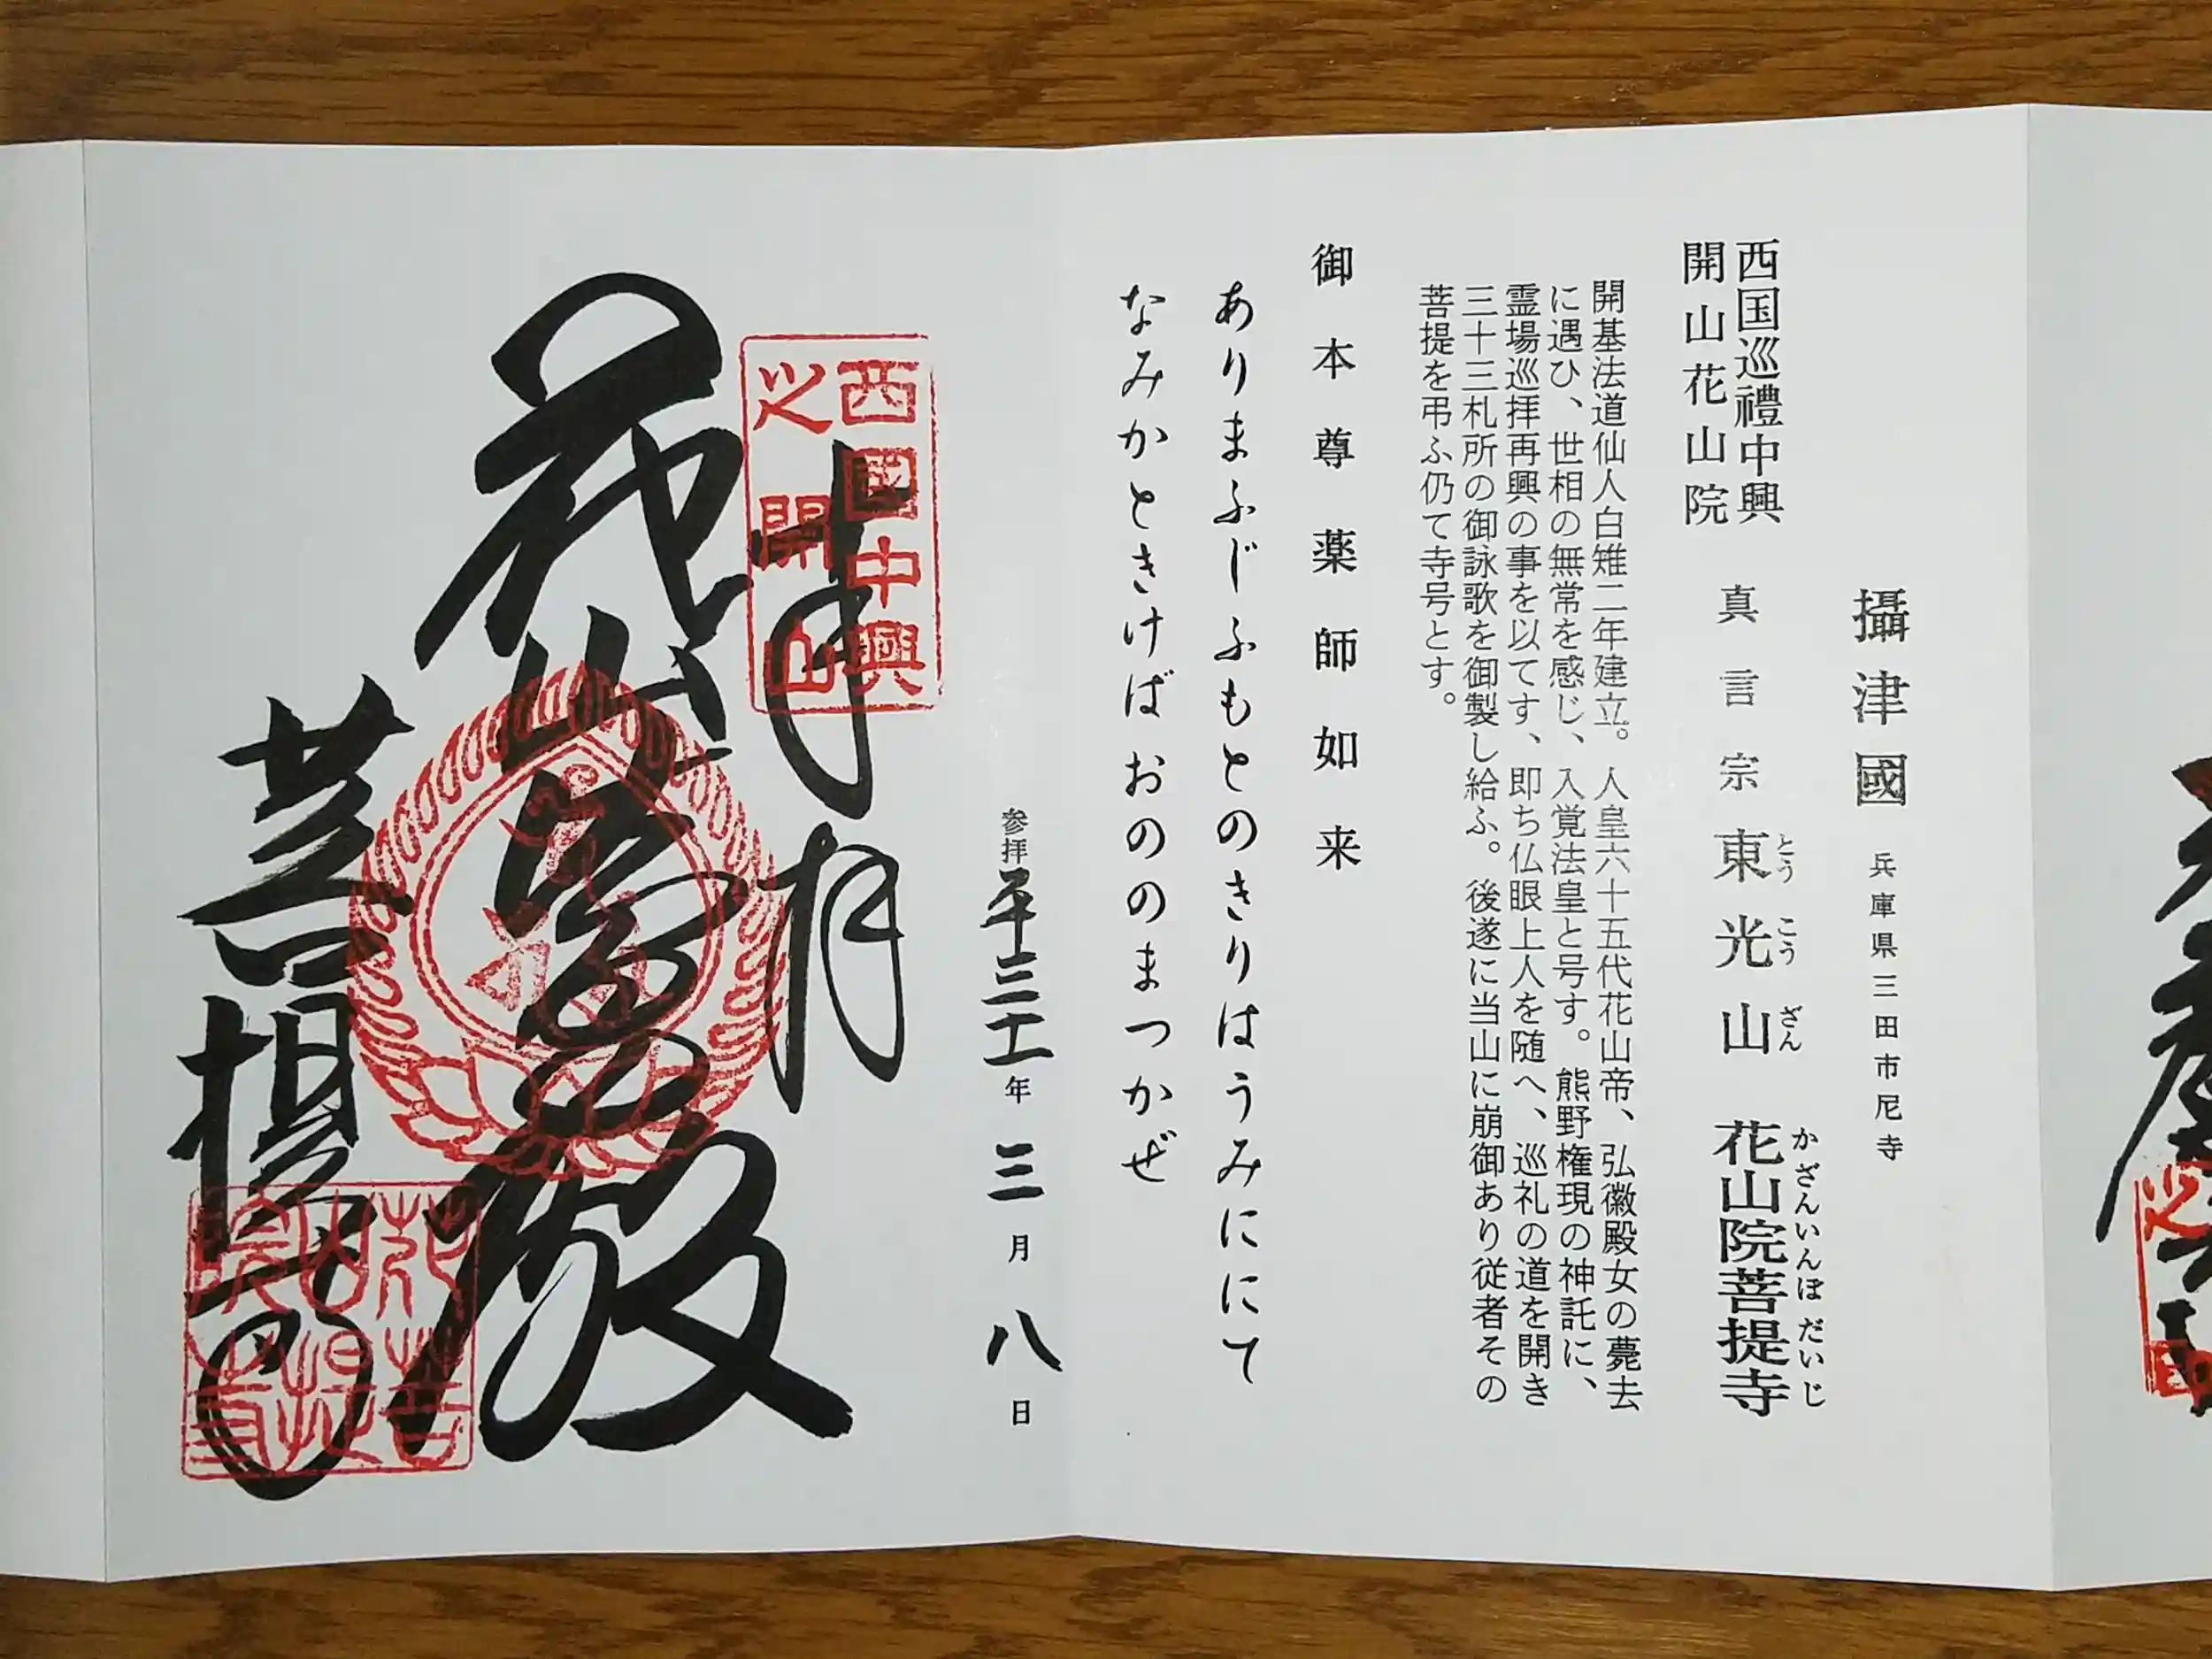 攝津國 兵庫県三田市尼寺
西国巡禮中興
開山花山院
真言宗 東光山 花山院菩提寺
とうこうざん かざんいんぼだいじ
開基法道仙人白雉二年建立。人皇六十五代花山帝、弘徽殿女の薨去
に遇ひ、世相の無常を感じ、入覚法皇と号す。熊野権現の神託に、
霊場巡拝再興の事を以てす、即ち仏眼上人を随へ、巡礼の道を開き
三十三札所の御詠歌を御製し給ふ。後遂に当山に崩御あり従者その
菩提を弔ふ仍て寺号とす。
御本尊薬師如来
ありまふじふもとのきりはうみににて
なみかときけばおののまつかぜ
参拝 平三十一年三月八日
奉拝
西國中興
之開山
花山
殿
菩提寺
花山院菩提寺